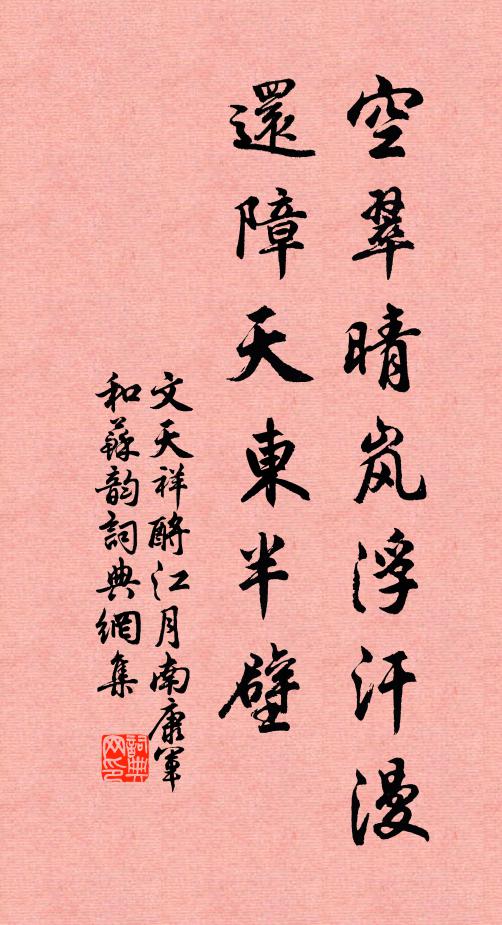 空翠晴岚浮汗漫
還障天東半壁
文天祥酹江月南康軍
和蘇韵詞典網集
詞典
网印